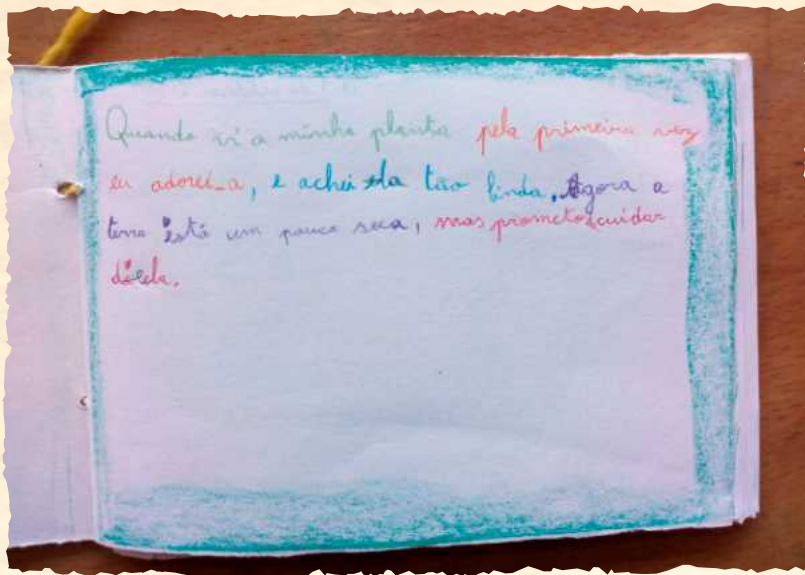 Quando vi a minha planta pela primeira vez
eu adorei-a, e achei-a tão linda. Agora a
terra está um pouco seca, mas prometo cuidar
dela.